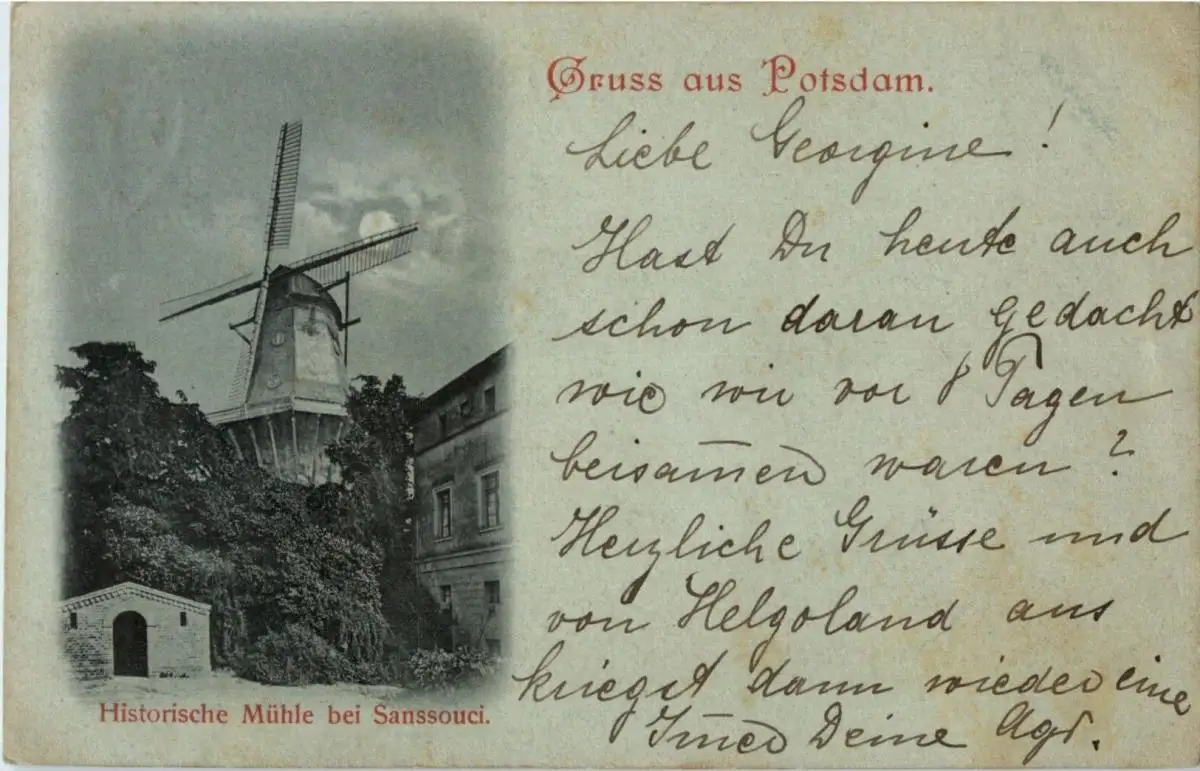 Gruss aus Potsdam.
Liebe Georgine!
Hast Du heute auch
schon daran gedacht
wie wir vor 8 Tagen
beisam̅en waren?
Herzliche Grüsse und
von Helgoland aus
kriegst dann wieder eine
Im̅er Deine Agr.
Historische Mühle bei Sanssouci.